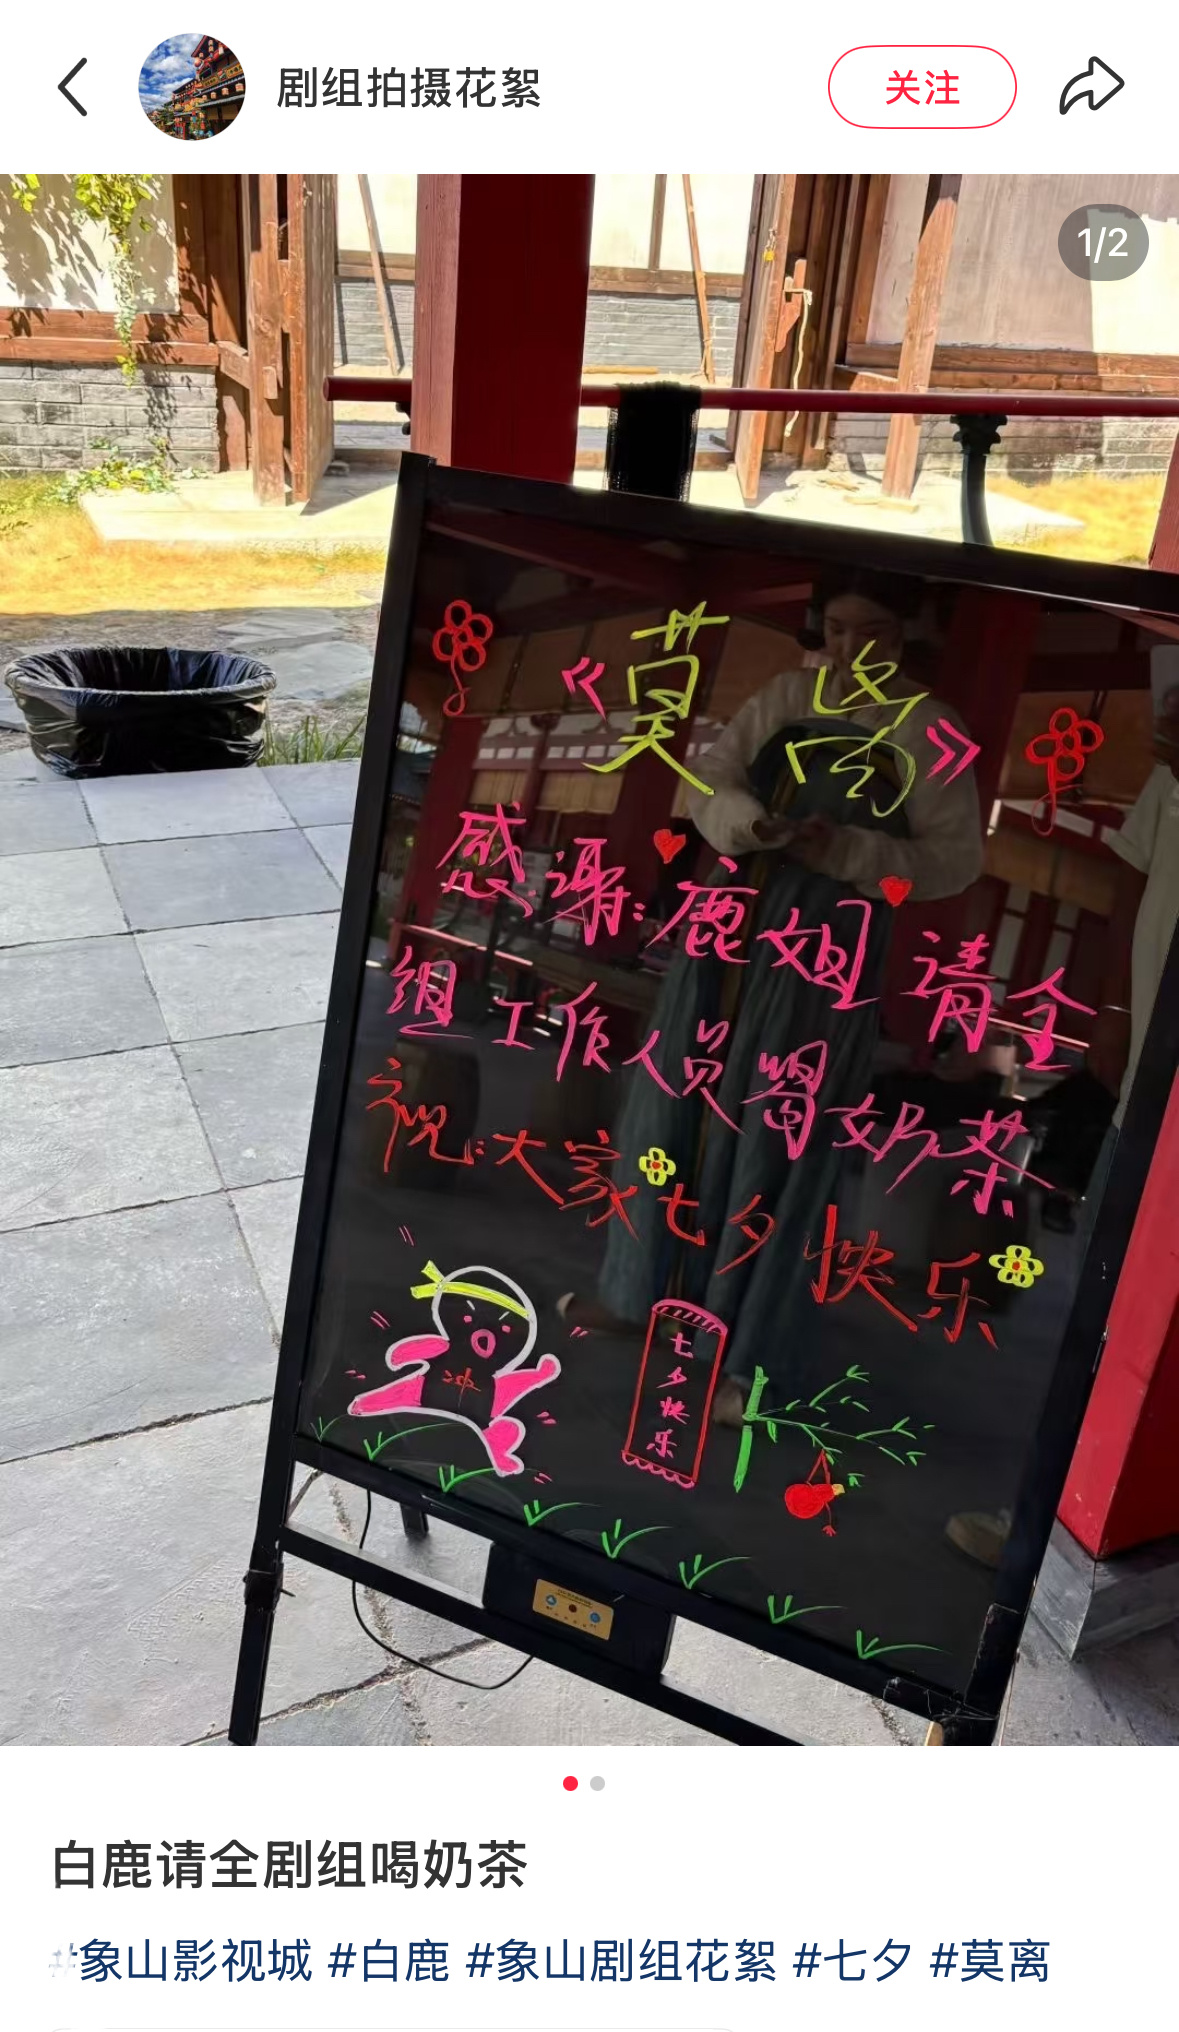 剧组拍摄花絮
关注
1/2
《莫离》
感谢:鹿姐 请全
组工作人员喝奶茶
祝:大家七夕快乐
冲
七夕快乐
白鹿请全剧组喝奶茶
#象山影视城 #白鹿 #象山剧组花絮 #七夕 #莫离